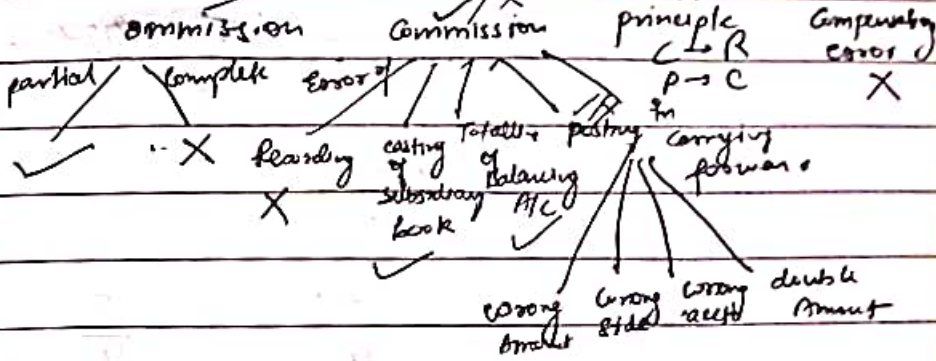 ommission Commission principle Compensating error
C → R
partial complete Error of P → C X
✓ X Recording casting of subsidiary book Totalling of Balancing A/C posting in carrying forward
X ✓ ✓
wrong Amount wrong side wrong acctt double Amount